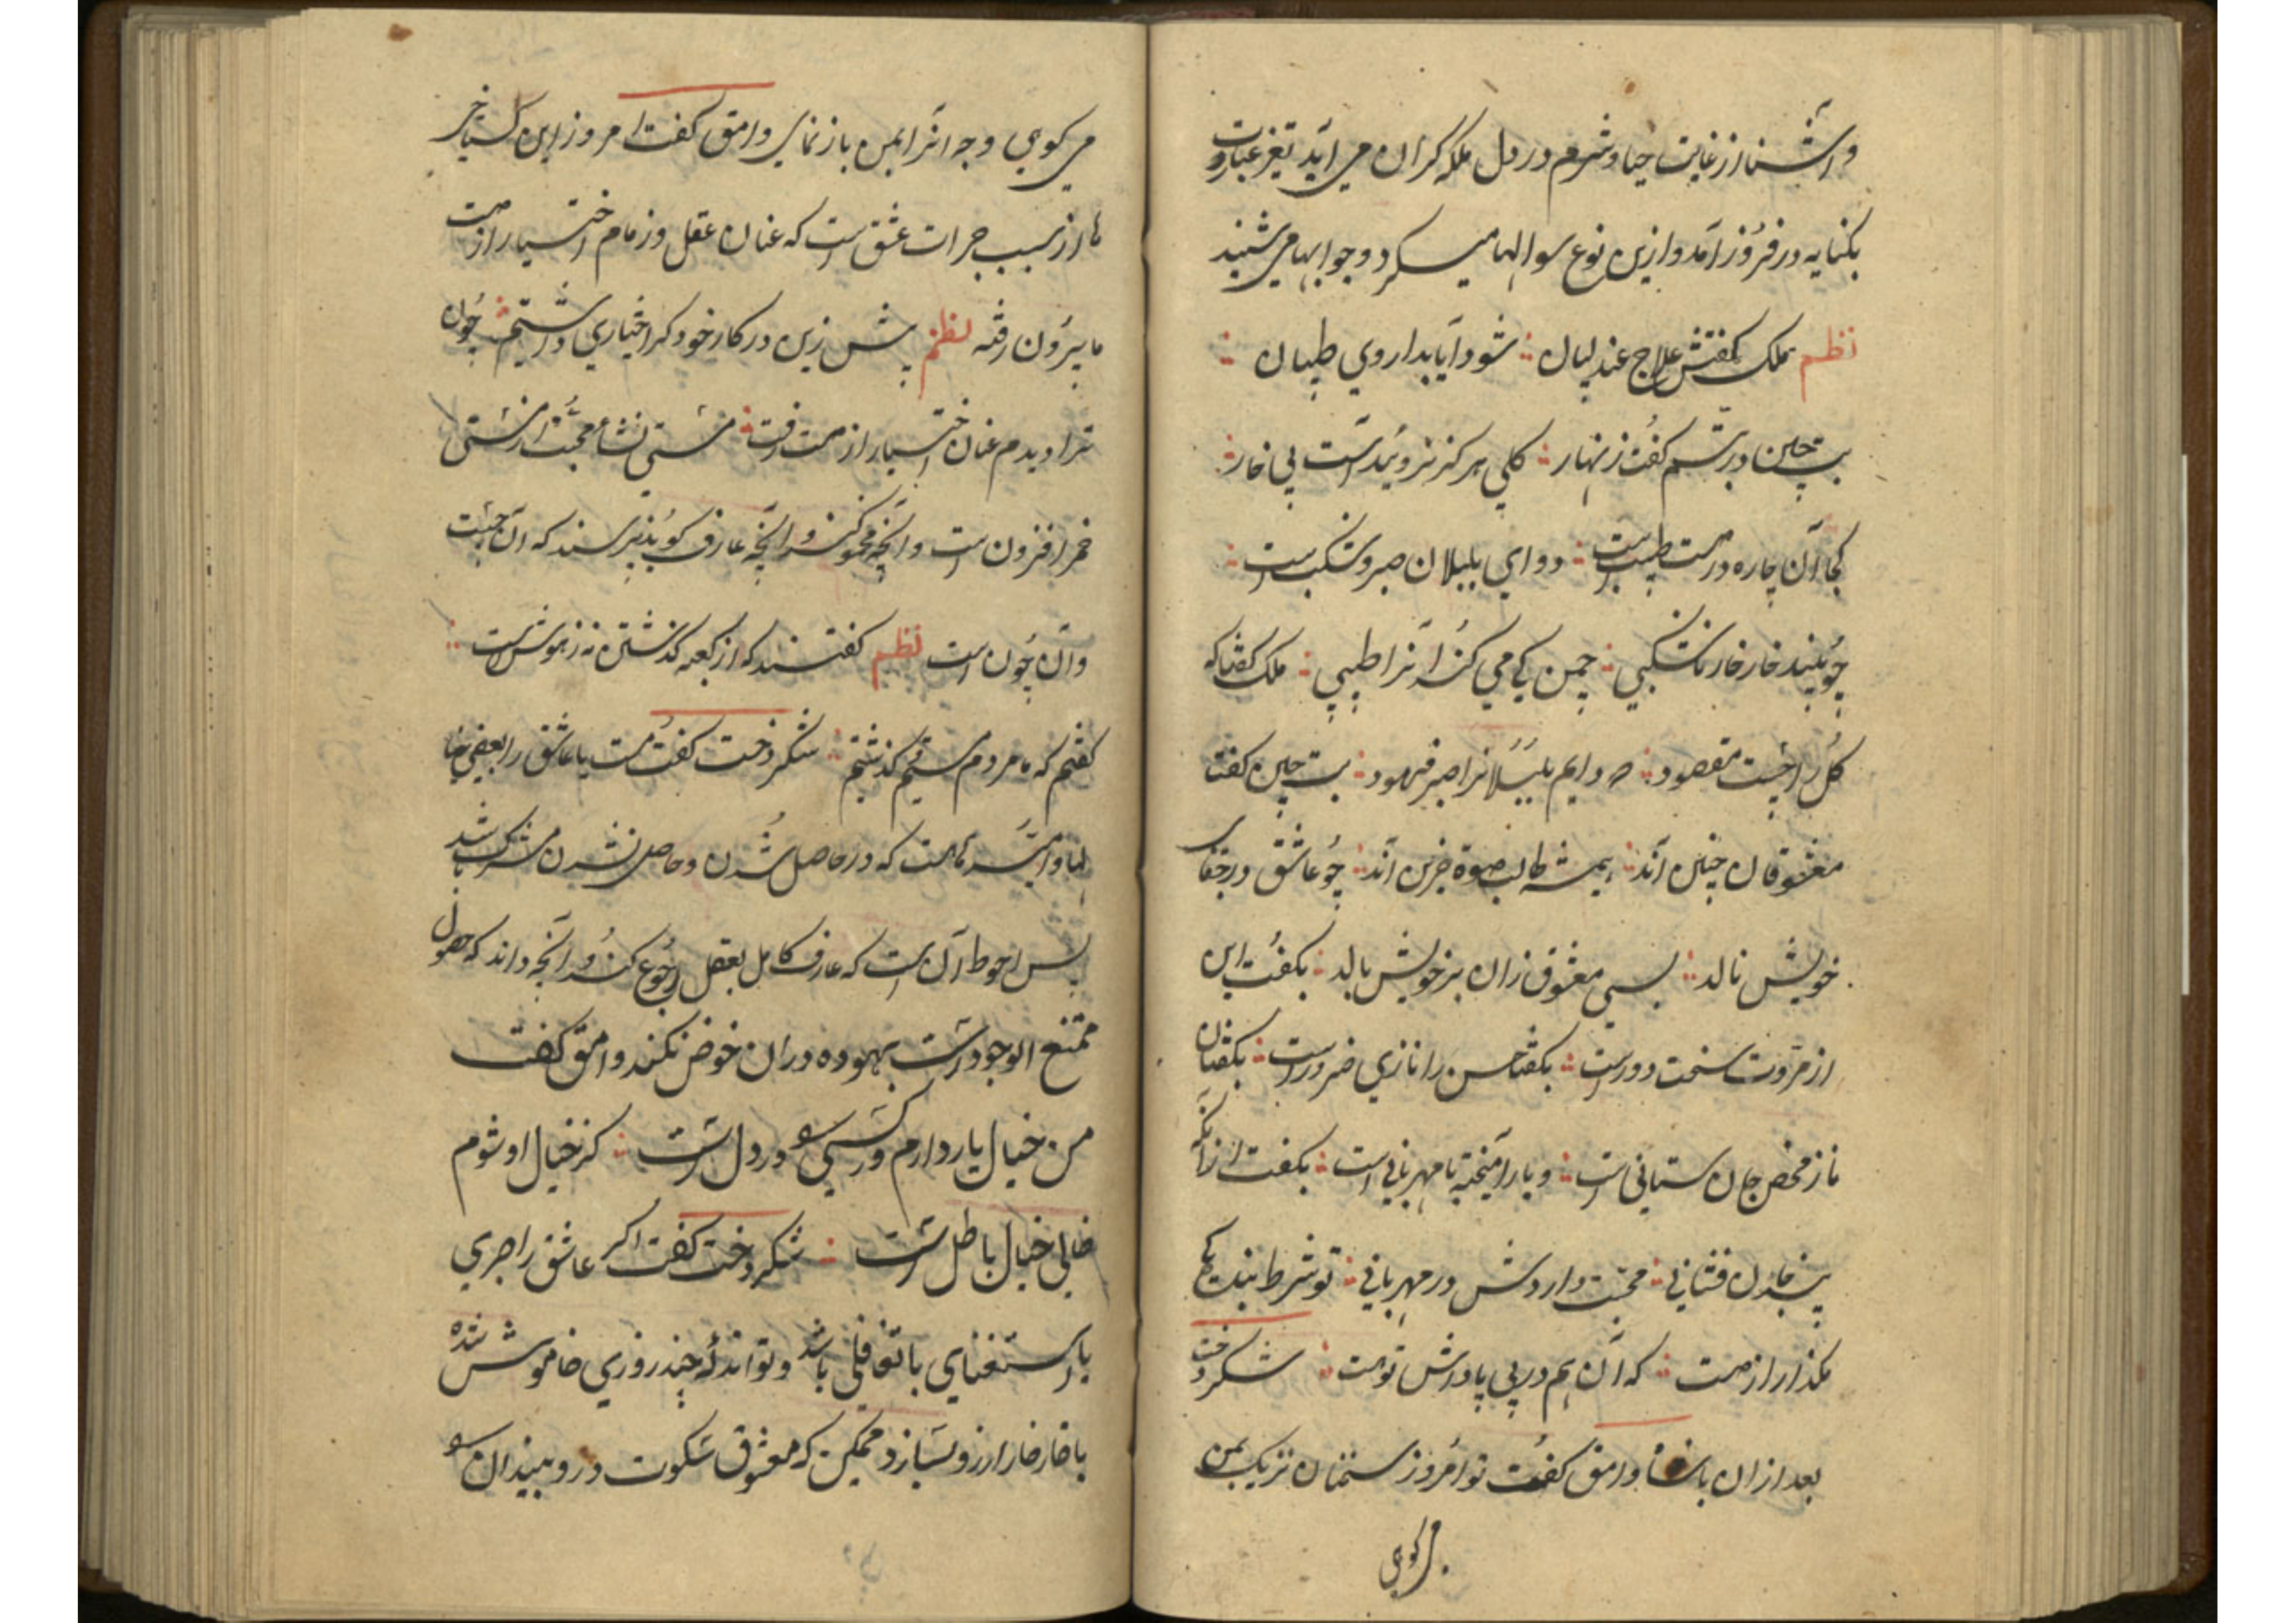 و آشنا از غایت حیا و شرم در دل ملکه کران می آید تغیر عبارت
بکنایه در فروز آمد و ازین نوع سوالها میکرد و جوابها می شنید
نظم ملک گفتش علاج عندلیبان شود آیا بداروی طبیبان
بت چین در تبسم گفت زنهار کلی هرگز نروئیدست بی خار
کجا آن چاره در دست طبیب است دوای بلبلان صبر و شکیب است
چو بیند خار خار ناشکیبی چمن کی می کند آنرا طبیبی ملک گفتا که
کل را چیست مقصود دوایم بلبلانرا صبر فرمود بت چین گفت
معشوقان چنین اند همیشه طالب صوت حزین اند چو عاشق در جفای
خویش نالد بسی معشوق زان بر خویش بالد بکفت این
از مروت سخت دورست بکفتا حسن را نازی ضرورست بکفتا این
ناز محض جان ستانی است و یا آمیخته با مهربانی است بکفت از آنکه
محبت دارد در مهربانی تو شرط بندکی
مکذار از دست که آن هم در پی پاداش توست شکردخت
بعد از آن با وامق کفت تو امروز سخنان نزدیک بمن
می کویی
می کویی وجه آنرا بمن باز نمای وامق کفت امروز این کستاخی
ما از سبب جرات عشق است که عنان عقل و زمام اختیار از دست
ما بیرون رفته نظم پیش زین در کار خود کر اختیاری داشتیم چون
ترا دیدم عنان اختیار از دست رفت مستی نشاء محبت از مستی
خمر افزون است و آنچه محو کند و آنچه عارف کوید نپرسند که آن چیست
و آن چون است نظم کفتند که از کعبه کذشتن نه ز هوش است
کفتم که ما مردم کذشتیم شکردخت کفت یا عاشق را بعضی
که در حاصل شدن و حاصل نشدن باشد
پس احوط آن است که عارف کامل بعقل رجوع کند و آنچه داند که حصول
ممتنع الوجود است بیهوده در آن خوض نکند وامق کفت
من خیال یار دارم در دل است کز خیال او شوم
خالی خیال باطل است شکردخت کفت اکر عاشق را صبری
یا استغنای یا تغافلی باشد و تواند که چند روزی خاموش شده
با خار خار آرزو بسازد ممکن که معشوق سکوت در و بیند آن